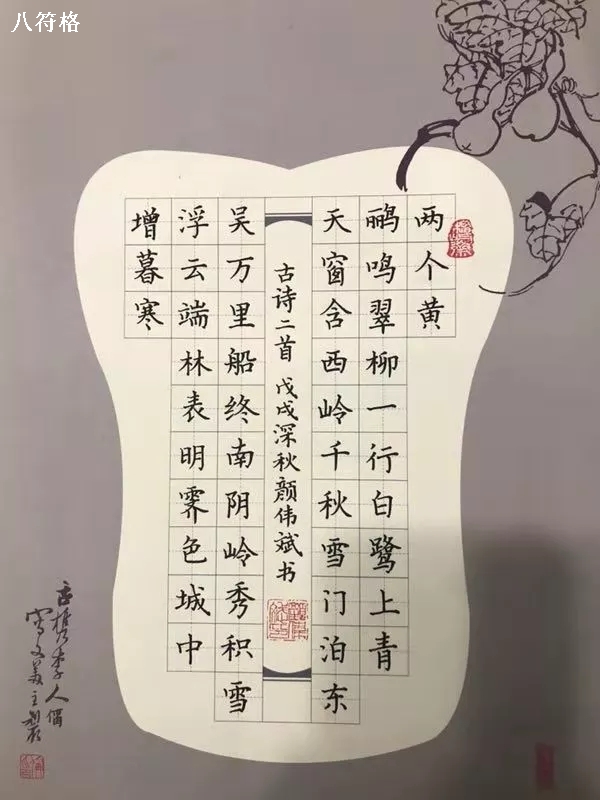 八符格
两个黄
鹂鸣翠柳一行白鹭上青
天窗含西岭千秋雪门泊东
古诗二首 戊戌深秋颜伟斌书
吴万里船终南阴岭秀积雪
浮云端林表明霁色城中
增暮寒
李人偶